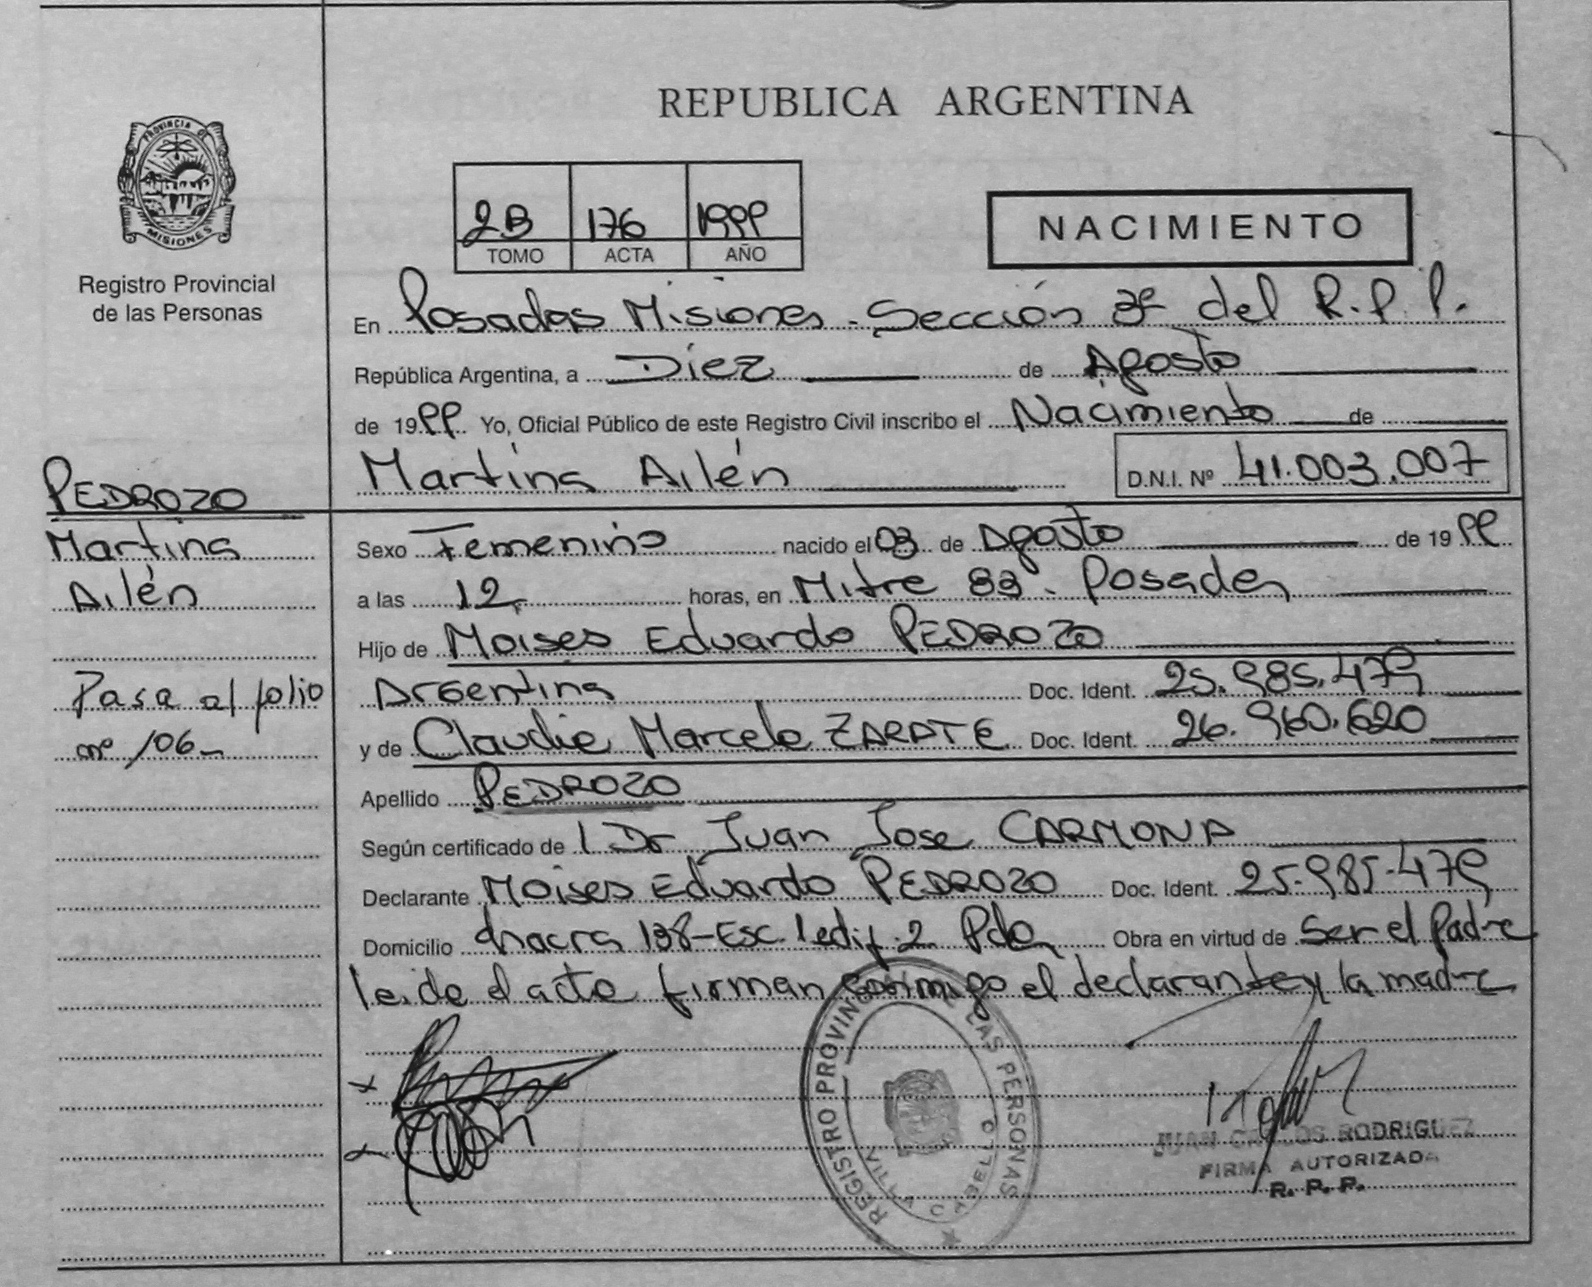 REPUBLICA ARGENTINA
PROVINCIA DE
MISIONES
Registro Provincial
de las Personas
2B 176 1999
TOMO ACTA AÑO
NACIMIENTO
En Posadas Misiones - Sección 3ª del R.P.P.
República Argentina, a Diez de Agosto
de 1999 Yo, Oficial Público de este Registro Civil inscribo el Nacimiento de
Martina Ailén D.N.I. Nº 41.003.007
PEDROZO
Martina
Ailén
Pasa al folio
nº 106
Sexo Femenino nacido el 03 de Agosto de 1999
a las 12 horas, en Mitre 83 - Posadas
Hijo de Moises Eduardo PEDROZO
Argentina Doc. Ident. 25.985.479
y de Claudia Marcela ZARATE Doc. Ident. 26.960.620
Apellido PEDROZO
Según certificado de l Dr Juan Jose CARMONA
Declarante Moises Eduardo PEDROZO Doc. Ident. 25-985-479
Domicilio chacra 138-Esc. 1 edif. 2 Pdas Obra en virtud de Ser el padre
leida el acta firman conmigo el declarante y la madre
REGISTRO PROVINCIAL DE LAS PERSONAS
JUAN CARLOS RODRIGUEZ
FIRMA AUTORIZADA
R. P. P.